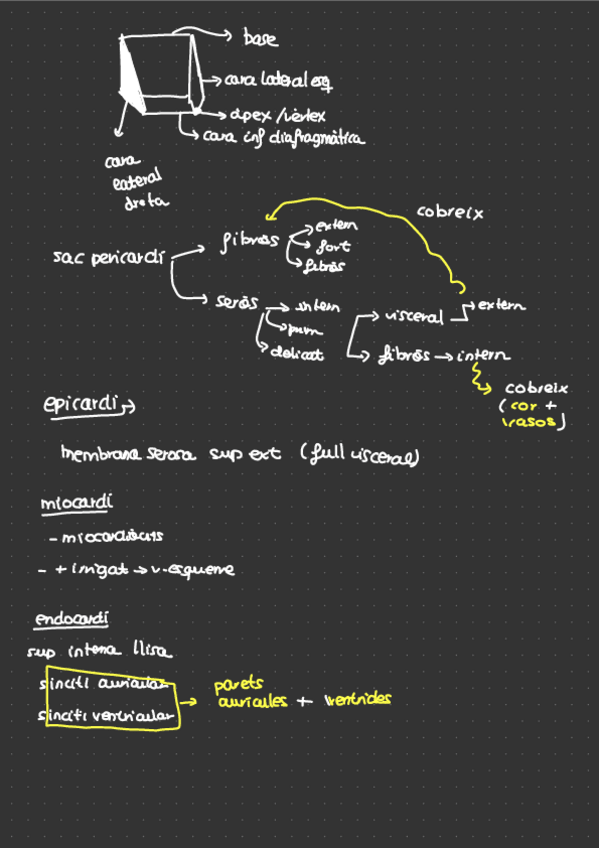 base
cara lateral esq
apex/vèrtex
cara inf diafragmàtica
cara
lateral
dreta
cobreix
sac pericardi
fibrós
extern
fort
fibrós
serós
intern
prim
delicat
visceral
extern
fibrós → intern
cobreix
(cor +
vasos)
epicardi →
membrana serosa sup ext (full visceral)
miocardi
- miocardiòcits
- + irrigat → v. esquerre
endocardi
sup interna llisa
sinciti auricular
sinciti ventricular
parets
aurícules + ventricles